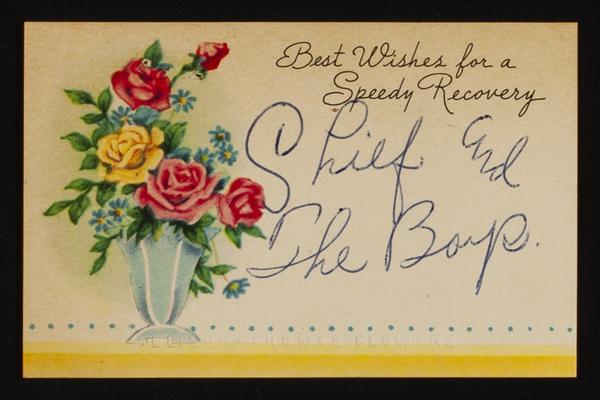 Best Wishes for a
Speedy Recovery
Chief And
The Boys.
THOMAS FLOWERS